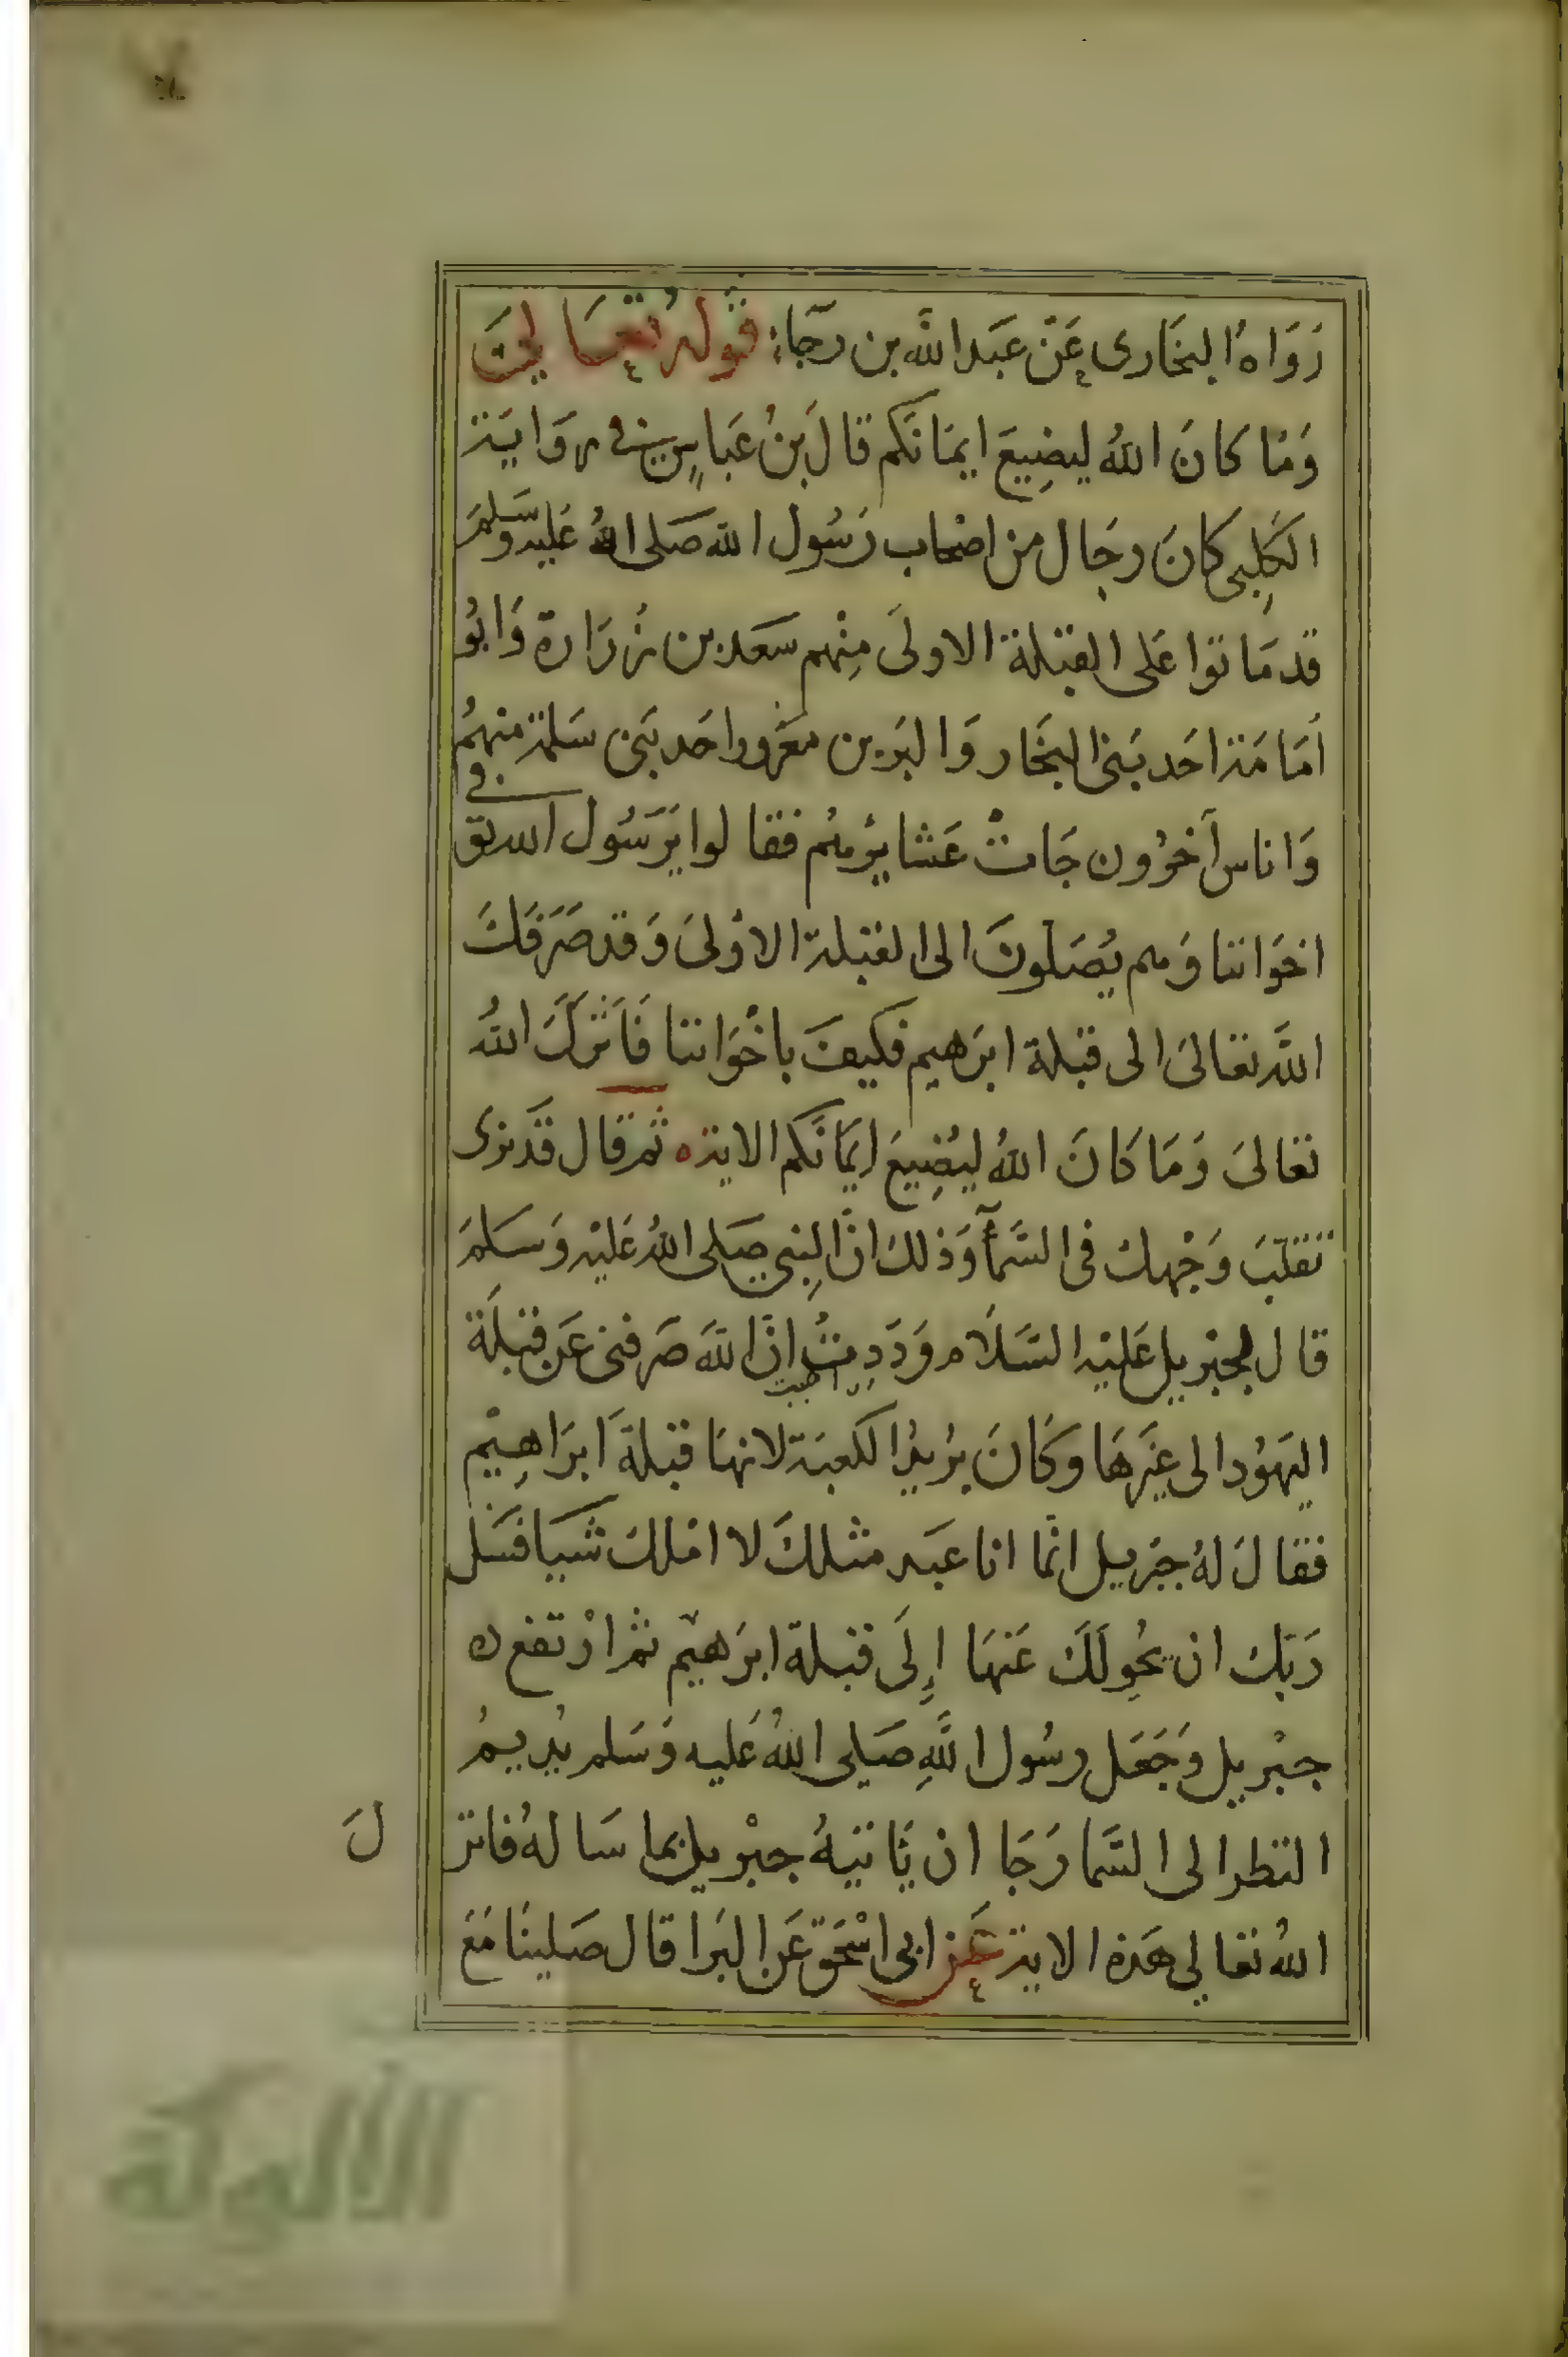 رَوَاهُ البخَارى عَنْ عَبَد الله بن رجَاءٍ قوله تعَالى
وَمَا كانَ اللهُ ليضِيعَ ايمَانكم قالَ بنُ عَباسٍ فى رِوَايَة
الكلِبى كانَ رجَال من اصحَاب رَسُول الله صَلى اللهُ عَليه وسَلمَ
قد مَاتوا عَلى القبلة الاولَى مِنْهم سَعد بن زُرَارة وَابُو
اُمَامَة احَد بَنى النجَار وَالبَر بن معرُور احَد بَنى سَلمَة منهُم
وَاناس آخرُون جَاتْ عَشايرُهُم فقالوا يَرَسُول الله توفى
اخوَاننا وَهم يُصَلونَ الى القبلة الاوْلىَ وَقد صَرَفَكَ
اللَّه تعَالىَ الى قبْلة ابرَهيم فكيفَ باخْوَاننا فَاَنزَلَ اللهُ
تعَالىَ وَمَا كَانَ اللهُ ليُضِيعَ ايمَانَكم الاية ثم قال قَد نرَى
تقَلبَ وَجْهك فى السَّمآء وَذلك انَّ النبِى صَلى اللهُ عَليْه وَسَلمَ
قال لجبْريل عَليْه السَّلَام وَدَدِتُ انَّ اللهَ صَرفنى عَن قبْلَة
احببت
اليَهوُد الى غيَرهَا وكَانَ يُريدُ الكعبَة لانهَا قبْلة ابرَاهِيْم
فقالَ لهُ جبْريل انَّما انا عَبَد مثلكَ لا امْلك شَيا فسَل
رَبّك ان يحُولَكَ عَنهَا اِلَى قبْلة ابرَهيْم ثم ارْتفع
جبْريل وَجَعَل رسُول اللَّهِ صَلى اللهُ عَليه وَسَلم يُديمُ
النظر الى السَّما رَجَا ان يَاتيَهُ جبْريل بما سَالهُ فانز
لَ
اللهُ تعَالى هَذه الاية عَن ابى اسْحَق عَن البَرا قال صَلينَا مَعَ
الألوكة